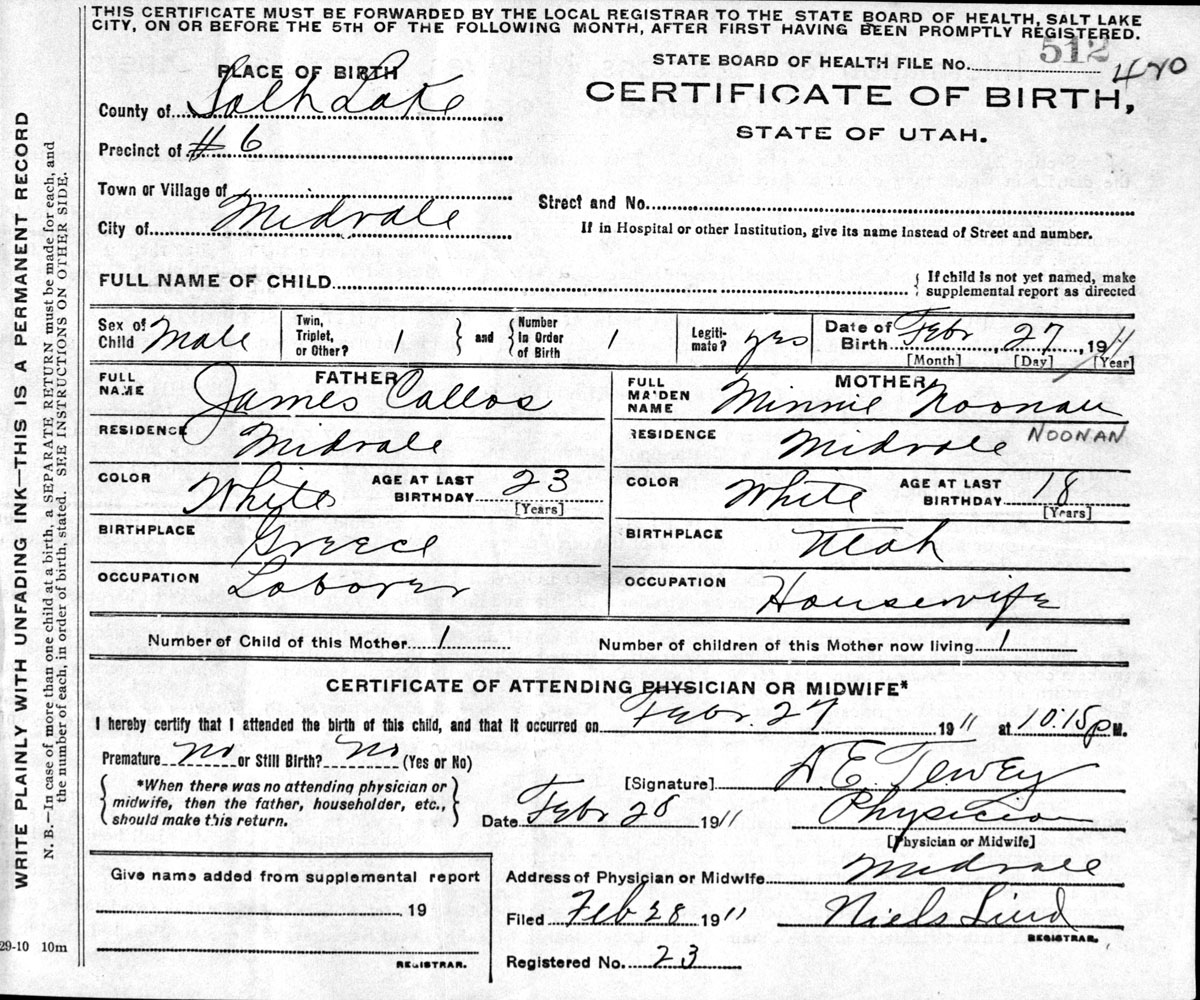 THIS CERTIFICATE MUST BE FORWARDED BY THE LOCAL REGISTRAR TO THE STATE BOARD OF HEALTH, SALT LAKE
CITY, ON OR BEFORE THE 5TH OF THE FOLLOWING MONTH, AFTER FIRST HAVING BEEN PROMPTLY REGISTERED.
STATE BOARD OF HEALTH FILE No. 512 420
CERTIFICATE OF BIRTH,
STATE OF UTAH.
PLACE OF BIRTH
County of Salt Lake
Precinct of #6
Town or Village of
City of Midvale
Street and No.
If in Hospital or other Institution, give its name instead of Street and number.
FULL NAME OF CHILD
{ If child is not yet named, make
supplemental report as directed
Sex of Child Male
Twin, Triplet, or Other? 1 } and { Number In Order of Birth 1
Legitimate? yes
Date of Birth Febr 27, 1911
[Month] [Day] [Year]
FATHER
FULL NAME James Callos
RESIDENCE Midvale
COLOR White AGE AT LAST BIRTHDAY 23
[Years]
BIRTHPLACE Greece
OCCUPATION Laborer
MOTHER
FULL MAIDEN NAME Minnie Noonan
NOONAN
RESIDENCE Midvale
COLOR White AGE AT LAST BIRTHDAY 18
[Years]
BIRTHPLACE Utah
OCCUPATION Housewife
Number of Child of this Mother 1 Number of children of this Mother now living 1
CERTIFICATE OF ATTENDING PHYSICIAN OR MIDWIFE*
I hereby certify that I attended the birth of this child, and that it occurred on Febr. 27 1911 at 10:15 p M.
Premature no or Still Birth? no (Yes or No)
{ *When there was no attending physician or
midwife, then the father, householder, etc.,
should make this return. }
[Signature] A. E. Tewey
Date Febr 28 1911 Physician
[Physician or Midwife]
Give name added from supplemental report
19
REGISTRAR.
Address of Physician or Midwife Midvale
Filed Feb 28 1911 Niels Lind
REGISTRAR.
Registered No. 23
29-10 10m
WRITE PLAINLY WITH UNFADING INK—THIS IS A PERMANENT RECORD
N. B.—In case of more than one child at a birth, a SEPARATE RETURN must be made for each, and
the number of each, in order of birth, stated. SEE INSTRUCTIONS ON OTHER SIDE.